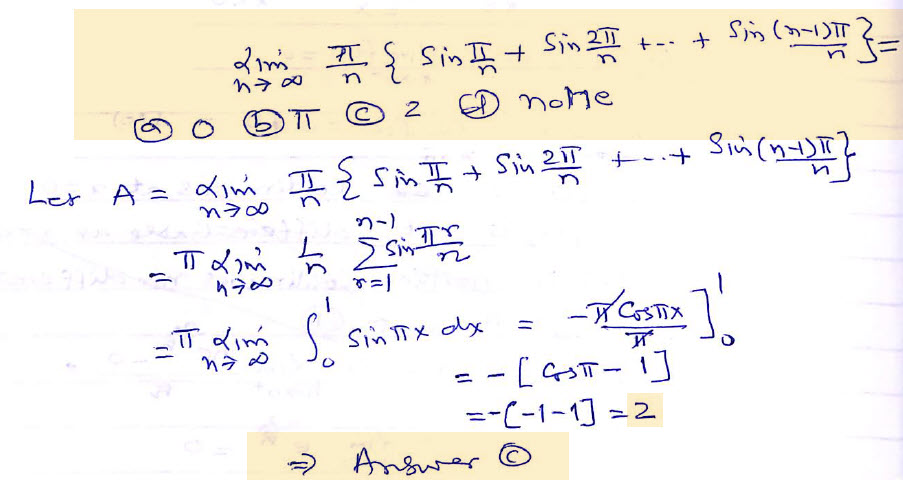 Lim n→∞ π/n { Sin π/n + Sin 2π/n + --- + Sin (n-1)π/n } =
ⓐ 0 ⓑ π ⓒ 2 ⓓ none
Let A = Lim n→∞ π/n { Sin π/n + Sin 2π/n + --- + Sin (n-1)π/n }
= π Lim n→∞ 1/n ∑ r=1 n-1 Sin πr/n
= π Lim n→∞ ∫₀¹ Sin πx dx = -π Cos πx / π ]₀¹
= - [ Cos π - 1 ]
= -[-1-1] = 2
⇒ Answer ⓒ